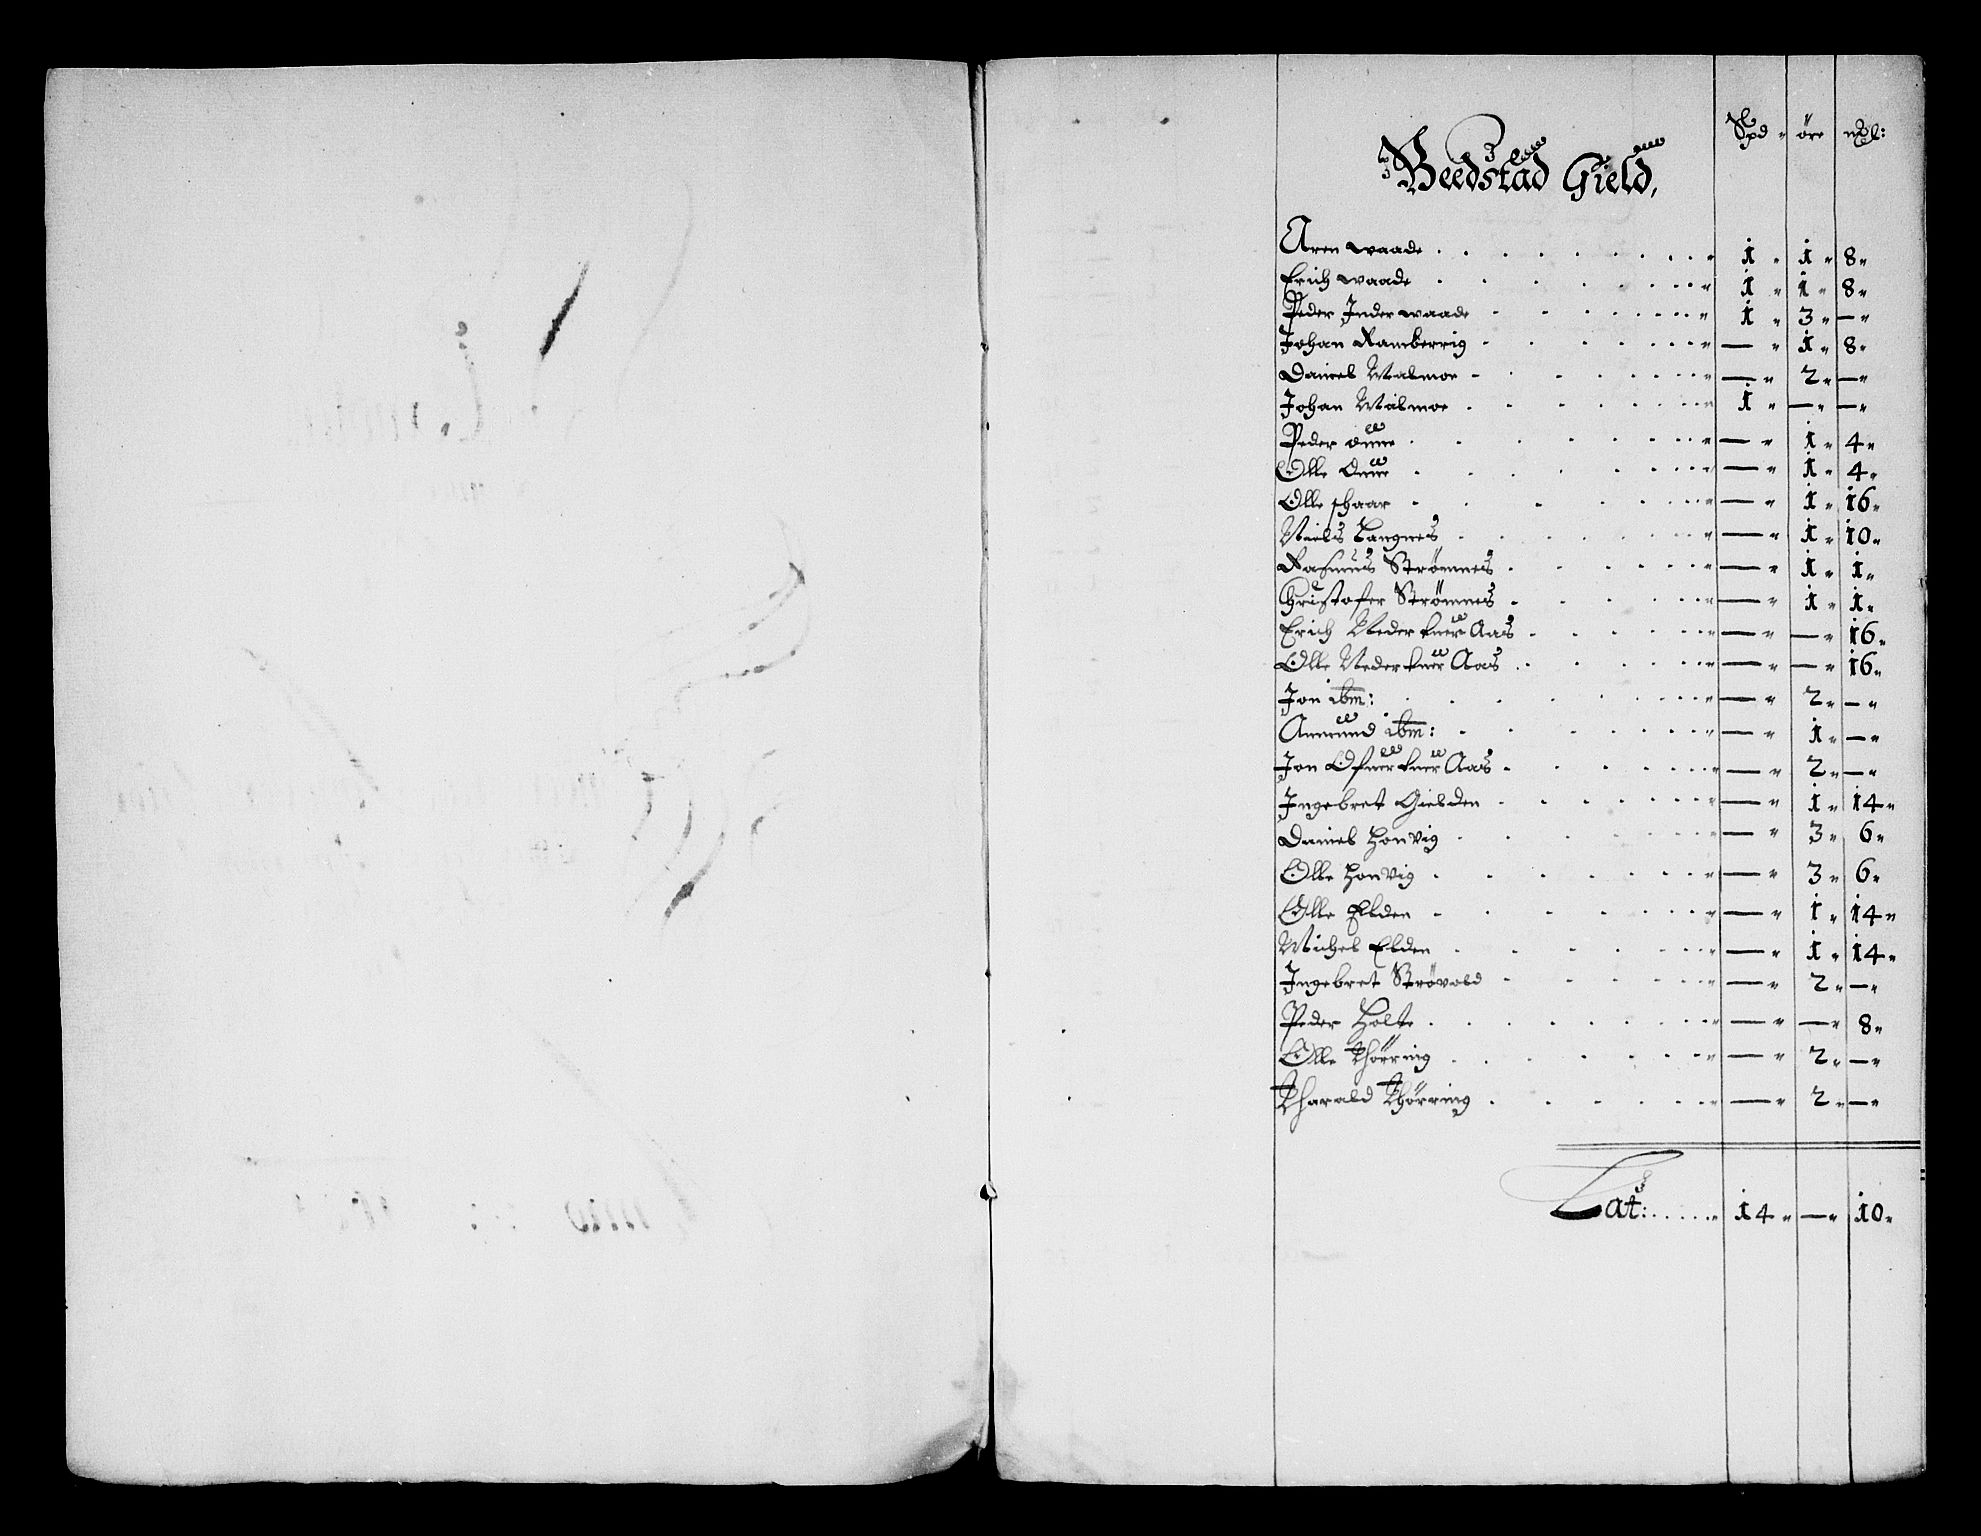 Spd " öre " mkl:
Beedstad Gield,
Aren waade . . . . " 1 " 1 " 8 "
Erich waade . . . . " 1 " 1 " 8 "
Peder Inder waade . . . . " 1 " 3 " — "
Johan Ramberrig . . . . " — " 1 " 8 "
Daniel Malmoe . . . . " — " 2 " — "
Johan Malmoe . . . . " 1 " — " — "
Peder Onne . . . . " — " 1 " 4 "
Olle Onne . . . . " — " 1 " 4 "
Olle schaar . . . . " — " 1 " 16 "
Niels Langnes . . . . " — " 1 " 10 "
Rasmus Strömnes . . . . " — " 1 " 1 "
Christofer Strömnes . . . . " — " 1 " 1 "
Erich Neder Aas . . . . " — " — " 16 "
Olle Neder Aas . . . . " — " — " 16 "
Jon ibm: . . . . " — " 2 " — "
Ammund ibm: . . . . " — " 1 " — "
Jon Aas . . . . " — " 2 " — "
Ingebret Gielden . . . . " — " 1 " 14 "
Daniel Honvig . . . . " — " 3 " 6 "
Olle Honvig . . . . " — " 3 " 6 "
Olle Elden . . . . " — " 1 " 14 "
Michel Elden . . . . " — " 1 " 14 "
Ingebret Strövold . . . . " — " 2 " — "
Peder Holte . . . . " — " — " 8 "
Olle Thörring . . . . " — " 2 " — "
Tharald Thörring . . . . " — " 2 " — "
Lat: . . . . " 14 " — " 10 "